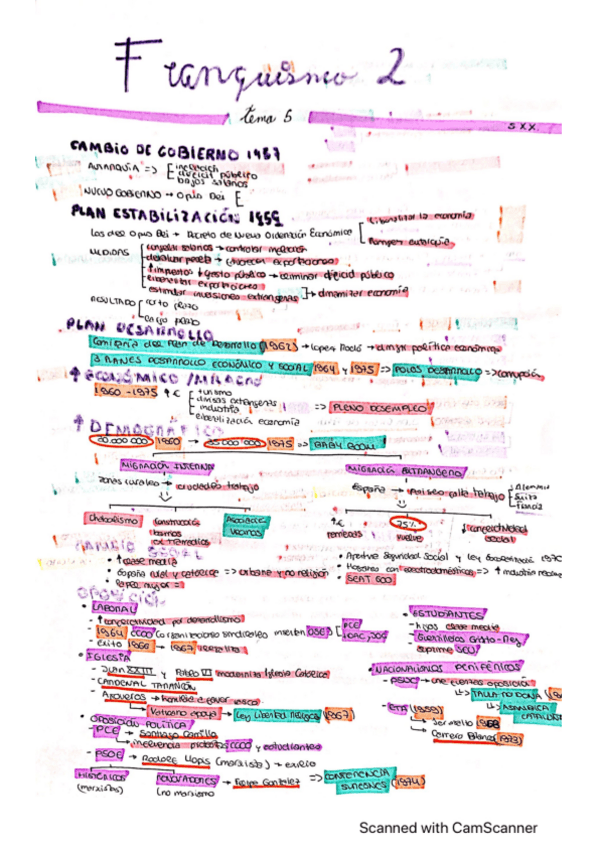 Franquismo 2
tema 5
S.XX.
CAMBIO DE GOBIERNO 1957
AUTARQUÍA => inflación
déficit público
bajos salarios
NUEVO GOBIERNO → Opus Dei
PLAN ESTABILIZACIÓN 1959
Los del Opus Dei → Decreto de Nueva Ordenación Económica
liberalizar la economía
romper autarquía
MEDIDAS
congelar salarios → controlar inflación
devaluar peseta → favorecer exportaciones
↑ impuestos ↓ gasto público → eliminar déficit público
liberalizar exportaciones
estimular inversiones extranjeras → dinamizar economía
RESULTADO corto plazo
largo plazo
PLAN DESARROLLO
Comisaría del Plan de Desarrollo (1962) → López Rodó → dirigir política económica
3 PLANES DESARROLLO ECONÓMICO Y SOCIAL 1964 y 1975 => POLOS DESARROLLO => corrupción
↑ ECONÓMICO / MILAGRO
1960-1975 ↑€ turismo
divisas extranjeras
industria
liberalización economía
=> PLENO DESEMPLEO
↑ DEMOGRÁFICO
30.000.000 1960 → 35.000.000 1975 => BABY BOOM
MIGRACIÓN INTERNA
MIGRACIÓN EXTRANJERO
zonas rurales → ciudades trabajo
España → trabajo
Alemania
Suiza
Francia
Chabolismo
Construcción
barrios
Asociación
Vecinos
↑€
remesas
75%
vuelve
↓ conflictividad
social
CAMBIO SOCIAL
• ↑ clase media
• España rural y católica => urbana y no religión
• Papel mujer =
• Aparece Seguridad Social y Ley 1970
• Hogares con electrodomésticos => ↑ industria
• SEAT 600
OPOSICIÓN
• LABORAL
- ↑ conflictividad por desarrollismo
- 1964 CCOO organizaciones sindicales
PCE
- éxito 1966 → 1967
• IGLESIA
- JUAN XXIII y Pablo VI moderniza Iglesia Católica
- CARDENAL TARANCÓN
Vaticano apoya → Ley Libertad Religiosa (1967)
• OPOSICIÓN POLÍTICA
- PCE → Santiago Carrillo
influencia CCOO y estudiantes
- PSOE → Rodolfo Llopis (marxista) → exilio
HISTÓRICOS
(marxistas)
RENOVADORES → Felipe González => CONFERENCIA
SURESNES (1974)
(no marxismo
• ESTUDIANTES
- hijos clase media
- Guerrilleros Cristo-Rey
- suprime SEU
• NACIONALISMOS PERIFÉRICOS
- PSUC → une fuerzas oposición
ASAMBLEA
CATALUÑA
- ETA (1959)
1968
Carrero Blanco (1973)
Scanned with CamScanner